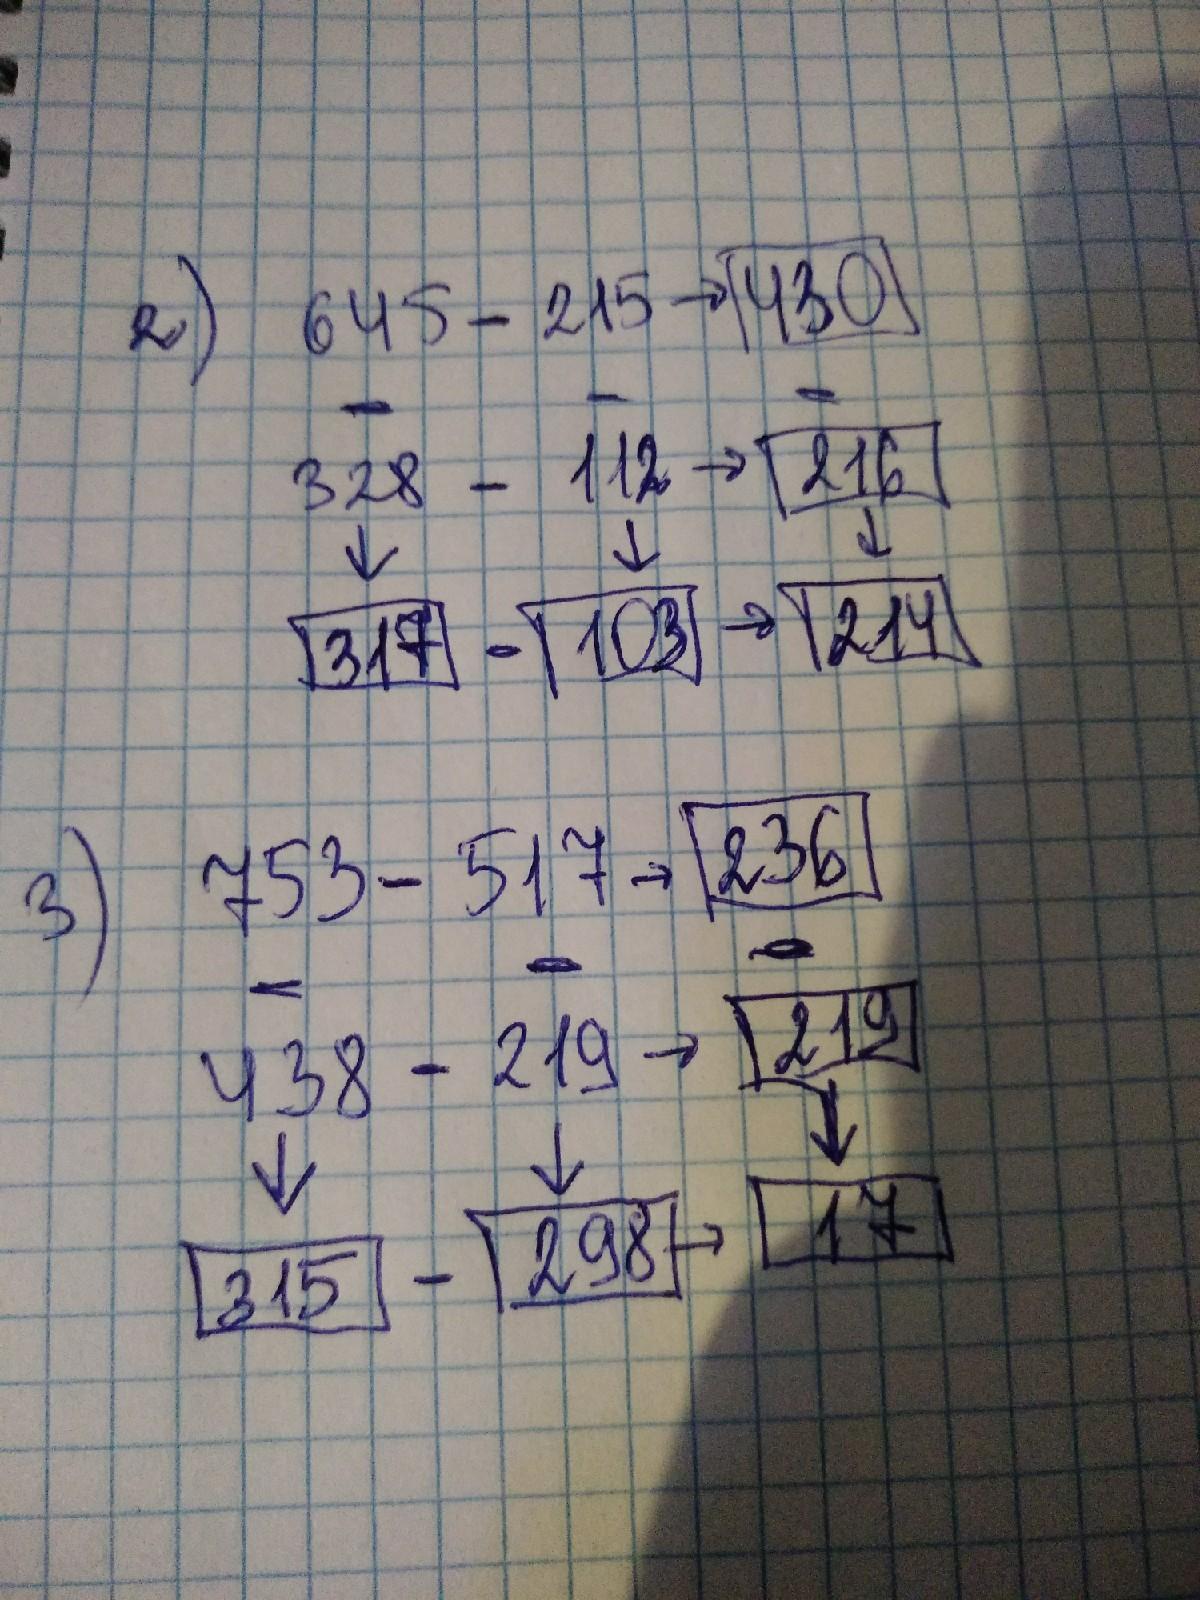 2) 645 - 215 → 430
- - -
328 - 112 → 216
↓ ↓ ↓
317 - 103 → 214
3) 753 - 517 → 236
- - -
438 - 219 → 219
↓ ↓ ↓
315 - 298 → 17